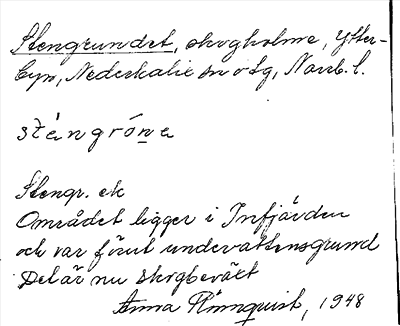 Stengrundet, skogholme, Ytter-
byn, Nederkalix sn otg, Norrb. l.
sténgróna
Stengr. ek
Området ligger i Infjärden
och var förut undervattensgrund
Det är nu skogbeväxt
Anna Rönnquist, 1948